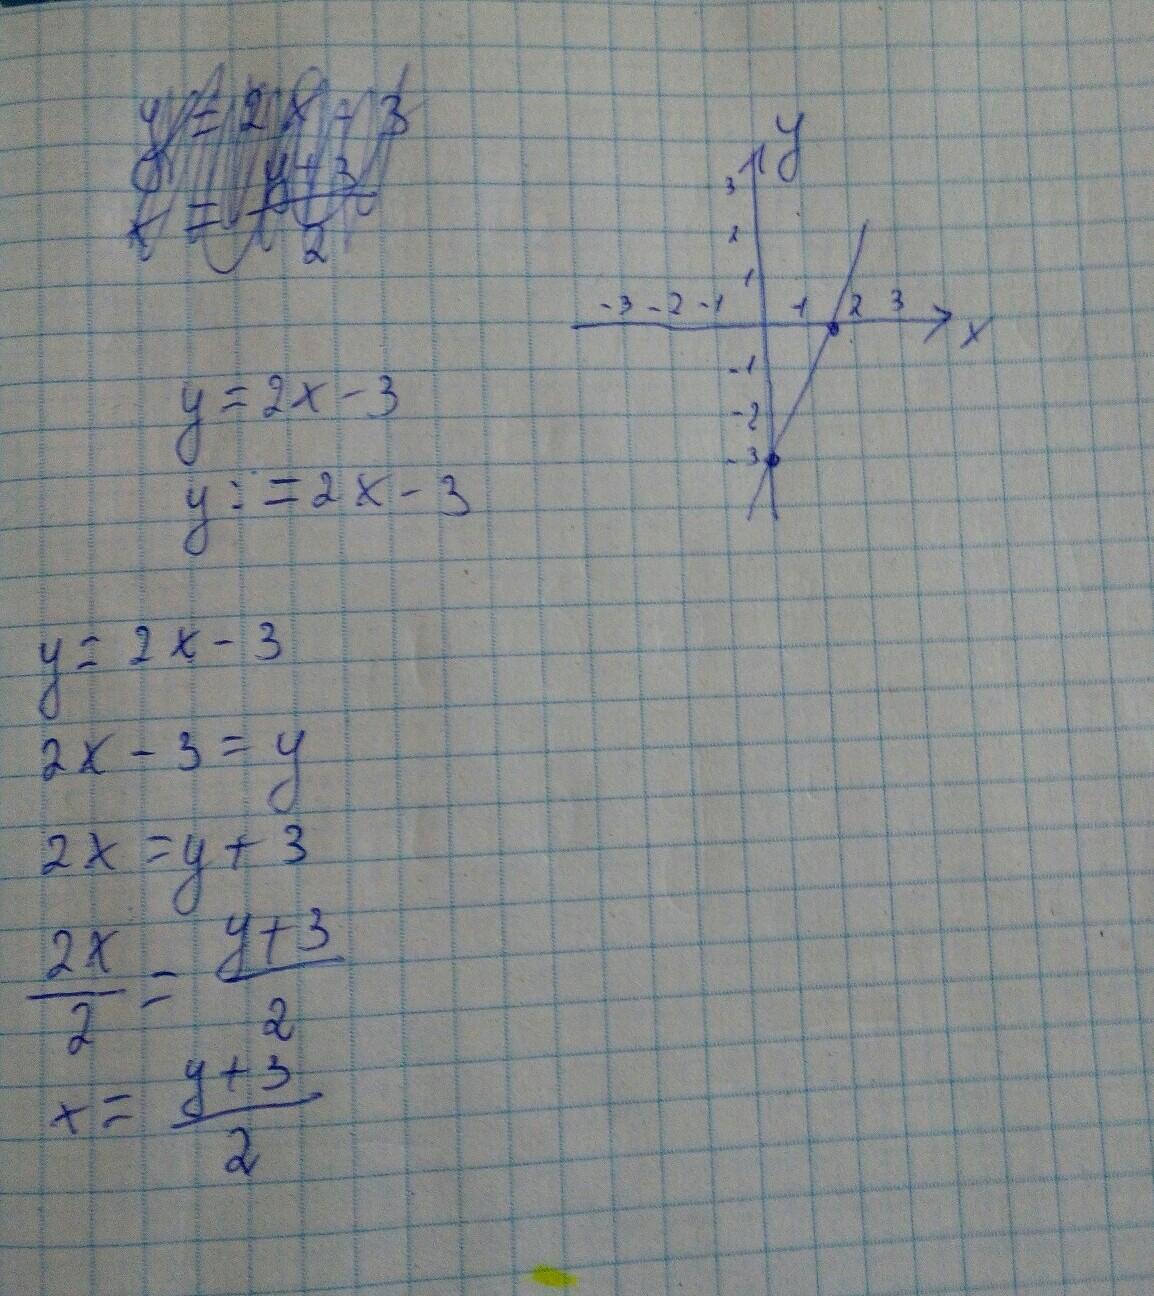 y = 2x - 3
x = y+3
2
y
3
2
1
-3 -2 -1 1 2 3
x
-1
-2
-3
y = 2x - 3
y := 2x - 3
y = 2x - 3
2x - 3 = y
2x = y + 3
2x/2 = y+3/2
x = y+3/2